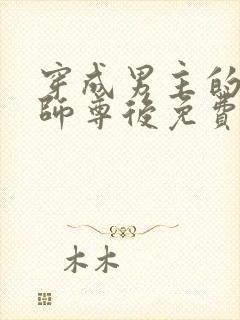 穿成男主的
師尊後免費
木木